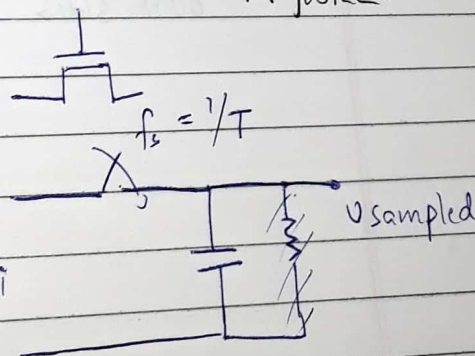 fs = 1/T
υsampled
i